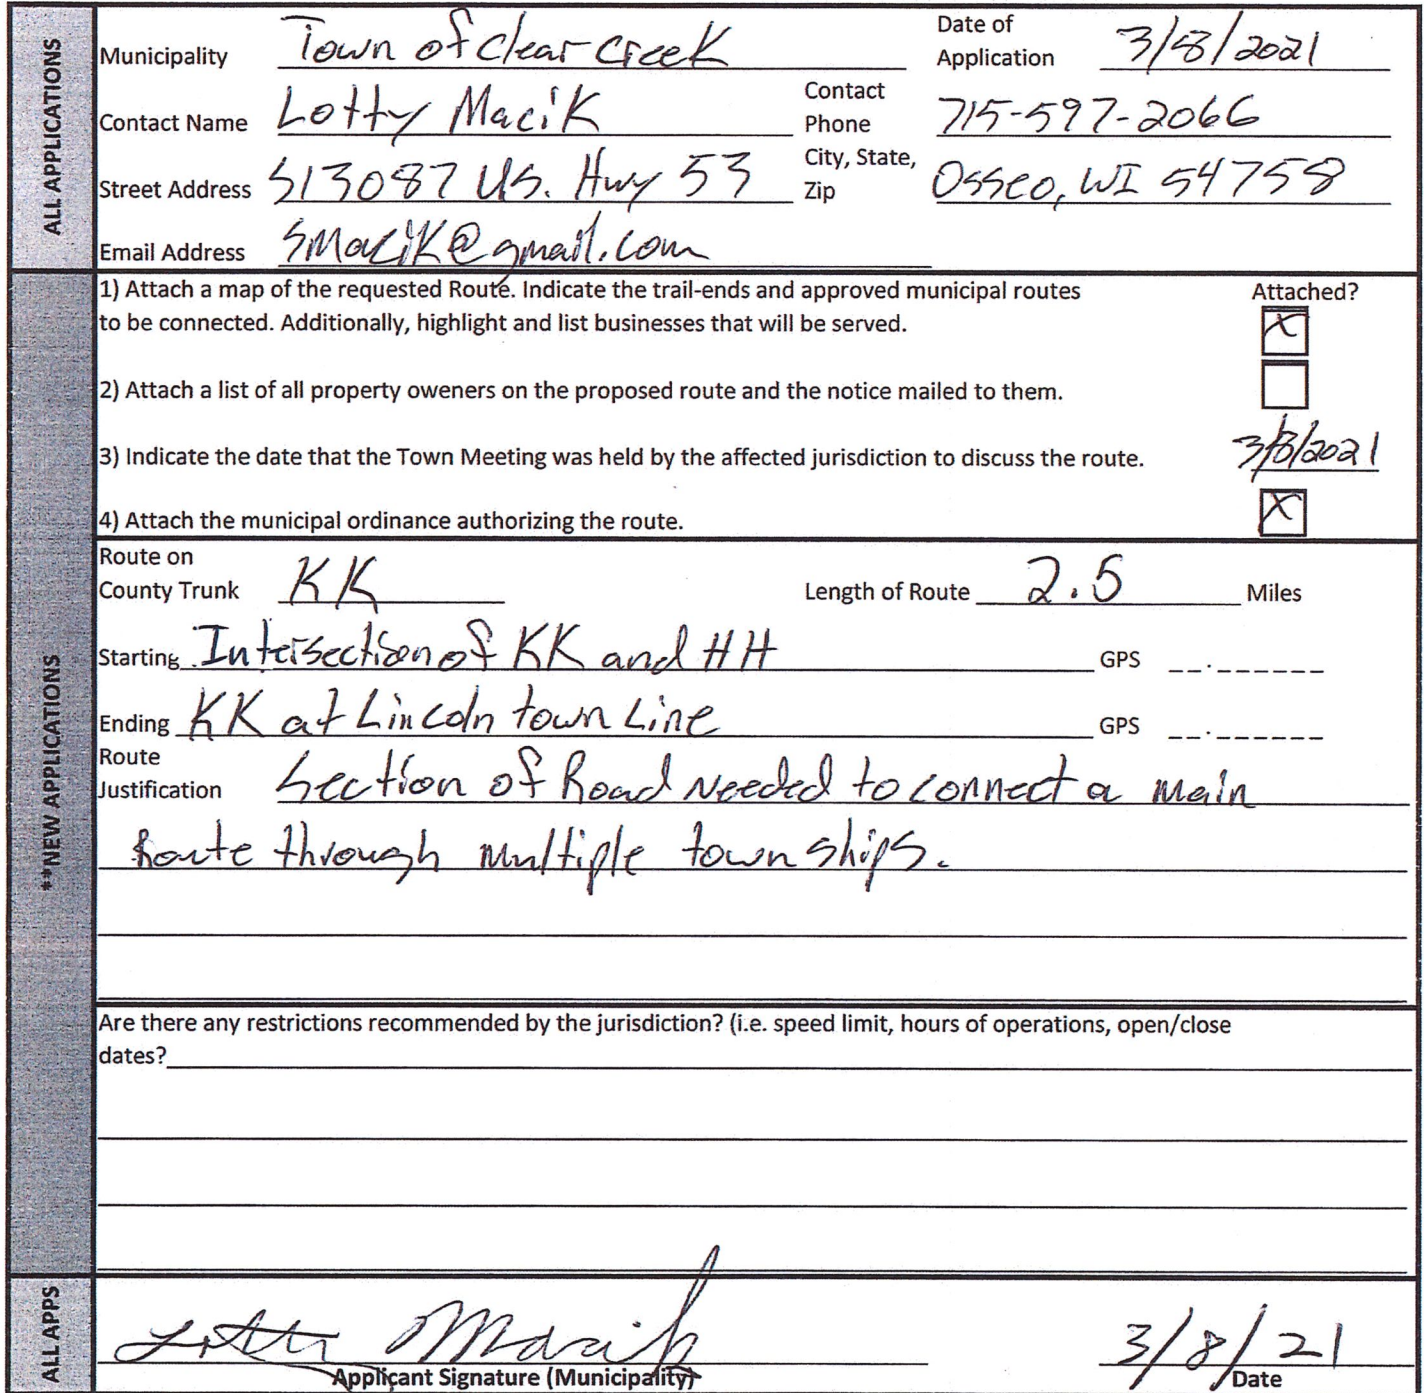 ALL APPLICATIONS
Municipality Town of Clear Creek Date of Application 3/8/2021
Contact Name Lotty Macik Contact Phone 715-597-2066
Street Address S13087 US. Hwy 53 City, State, Zip Osseo, WI 54758
Email Address SMacik@gmail.com
**NEW APPLICATIONS
1) Attach a map of the requested Route. Indicate the trail-ends and approved municipal routes Attached?
to be connected. Additionally, highlight and list businesses that will be served. X
2) Attach a list of all property oweners on the proposed route and the notice mailed to them.
3) Indicate the date that the Town Meeting was held by the affected jurisdiction to discuss the route. 3/8/2021
4) Attach the municipal ordinance authorizing the route. X
Route on County Trunk KK Length of Route 2.5 Miles
Starting Intersection of KK and HH GPS __.______
Ending KK at Lincoln town Line GPS __.______
Route Justification Section of Road Needed to connect a main
Route through multiple town ships.
Are there any restrictions recommended by the jurisdiction? (i.e. speed limit, hours of operations, open/close
dates?
ALL APPS
Lotty Macik 3/8/21
Applicant Signature (Municipality) Date